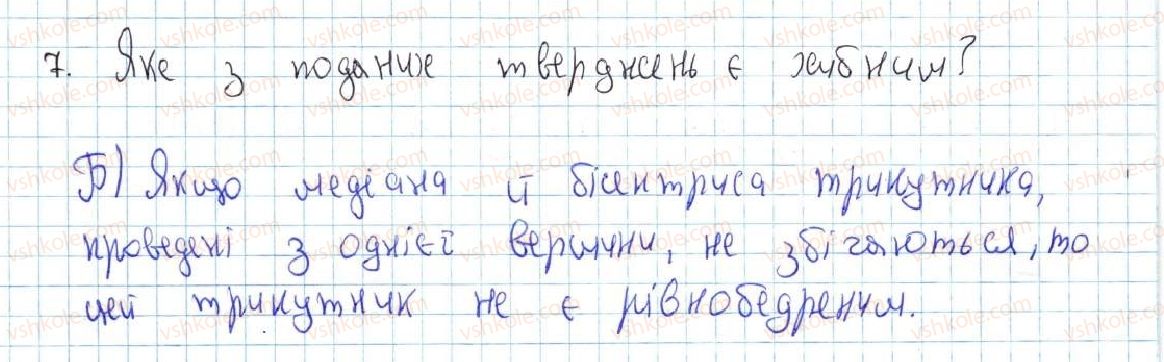 7. Яке з поданих тверджень є хибним?
Б) Якщо медіана й бісектриса трикутника,
проведені з однієї вершини, не збігаються, то
цей трикутник не є рівнобедреним.